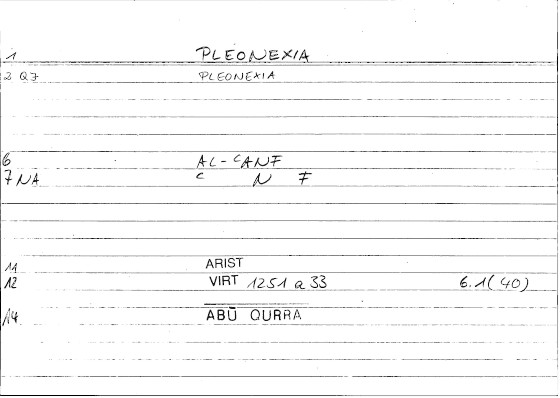 1 PLEONEXIA
2 Q7 PLEONEXIA
6 AL-ʿANF
7 NA ʿ N F
11 ARIST
12 VIRT 1251 a 33 6.1(40)
14 ABŪ QURRA